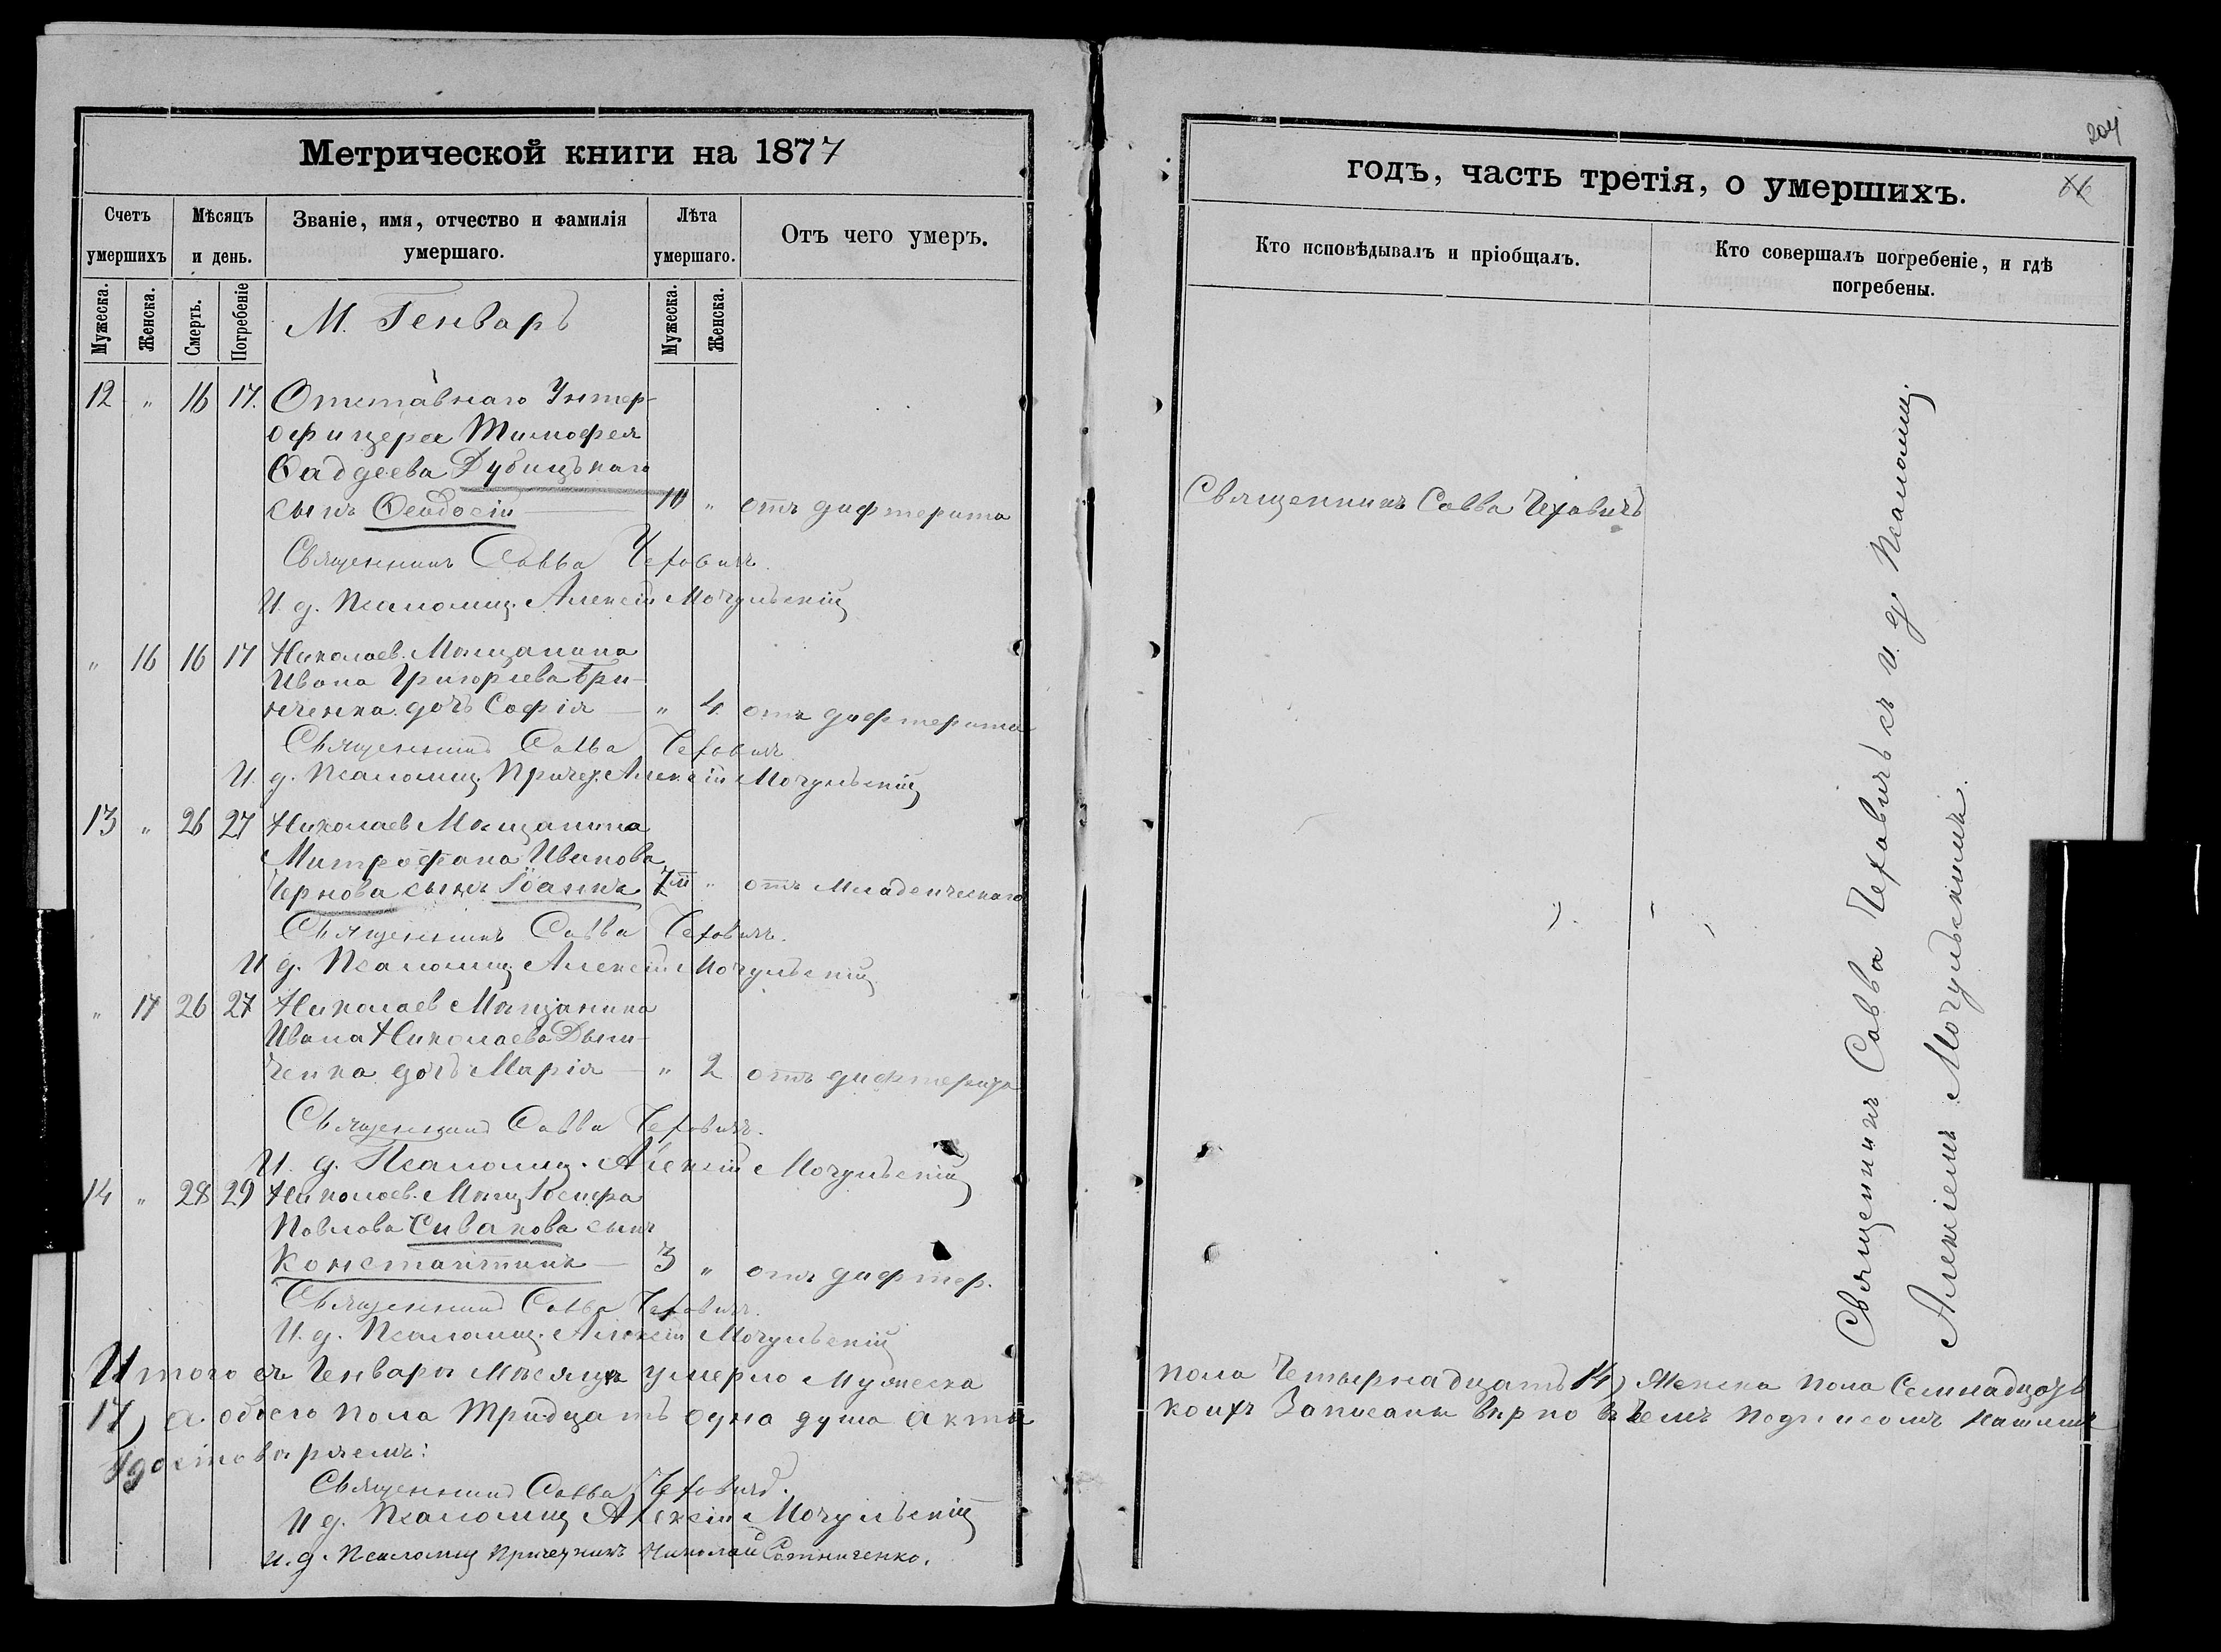 Метрической книги на 1877
Счетъ умершихъ
Мѣсяцъ и день.
Званіе, имя, отчество и фамилія умершаго.
Лѣта умершаго.
Отъ чего умеръ.
Мужеска.
Женска.
Смерть.
Погребеніе
М. Генваръ
Мужеска.
Женска.
12 " 16 17. Отставнаго Унтер-
офицера Тимофея
Фаддеева Дубицькаго
сынъ Феодосій — 10 " отъ дифтерита
Священникъ Савва Чеховичъ.
И. д. Псаломщ. Алексій Мочульскій
" 16 16 17 Николаев. Мѣщанина
Ивана Григорьева Гри-
нченка дочь Софія — " 4. отъ дифтерита
Священникъ Савва Чеховичъ
И. д. Псаломщ. Причет. Алексій Мочульскій
13 " 26 27 Николаев Мѣщанина
Митрофана Иванова
Чернова сынъ Іоаннъ " отъ Младенческаго
Священникъ Савва Чеховичъ.
И д. Псаломщ Алексій Мочульскій
" 17 26 27 Николаев Мѣщанина
Ивана Николаева
ченка дочь Марія — " 2 отъ дифтерита
Священникъ Савва Чеховичъ.
И. д. Псаломщ. Алексій Мочульскій
14 " 28 29 Николаев. Мѣщ Іосифа
Павлова Сивакова сынъ
Константинъ — 3 " отъ дифтер.
Священникъ Савва Чеховичъ.
И. д. Псаломщ. Алексій Мочульскій
Итого въ Генварѣ Мѣсяцѣ умерло Мужеска
17) а обоего пола Тридцать одна душа акты
удостовѣряемъ:
Священникъ Савва Чеховичъ.
И д. Псаломщ Алексій Мочульскій
и. д. Псаломщ Причетникъ Николай Сотниченко.
204
годъ, часть третія, о умершихъ.
66
Кто исповѣдывалъ и пріобщалъ.
Кто совершалъ погребеніе, и гдѣ погребены.
Священникъ Савва Чеховичъ
Священникъ Савва Чеховичъ съ и. д. Псаломщ.
Алексіемъ Мочульскимъ.
пола Четырнадцать 14) Женска пола Семнадцать
коихъ Записаны вѣрно въ чемъ подписомъ нашимъ